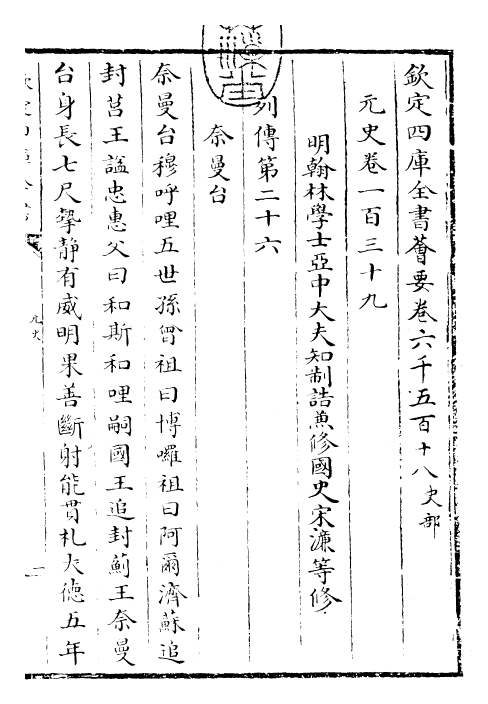 欽定四庫全書薈要卷六千五百十八史部
元史卷一百三十九
明翰林學士亞中大夫知制誥兼修國史宋濂等修
列傳第二十六
奈曼台
奈曼台穆呼哩五世孫曾祖曰博囉祖曰阿爾濟蘇追
封莒王諡忠惠父曰和斯和哩嗣國王追封薊王奈曼
台身長七尺摰靜有威明果善斷射能貫札大德五年
元史
一